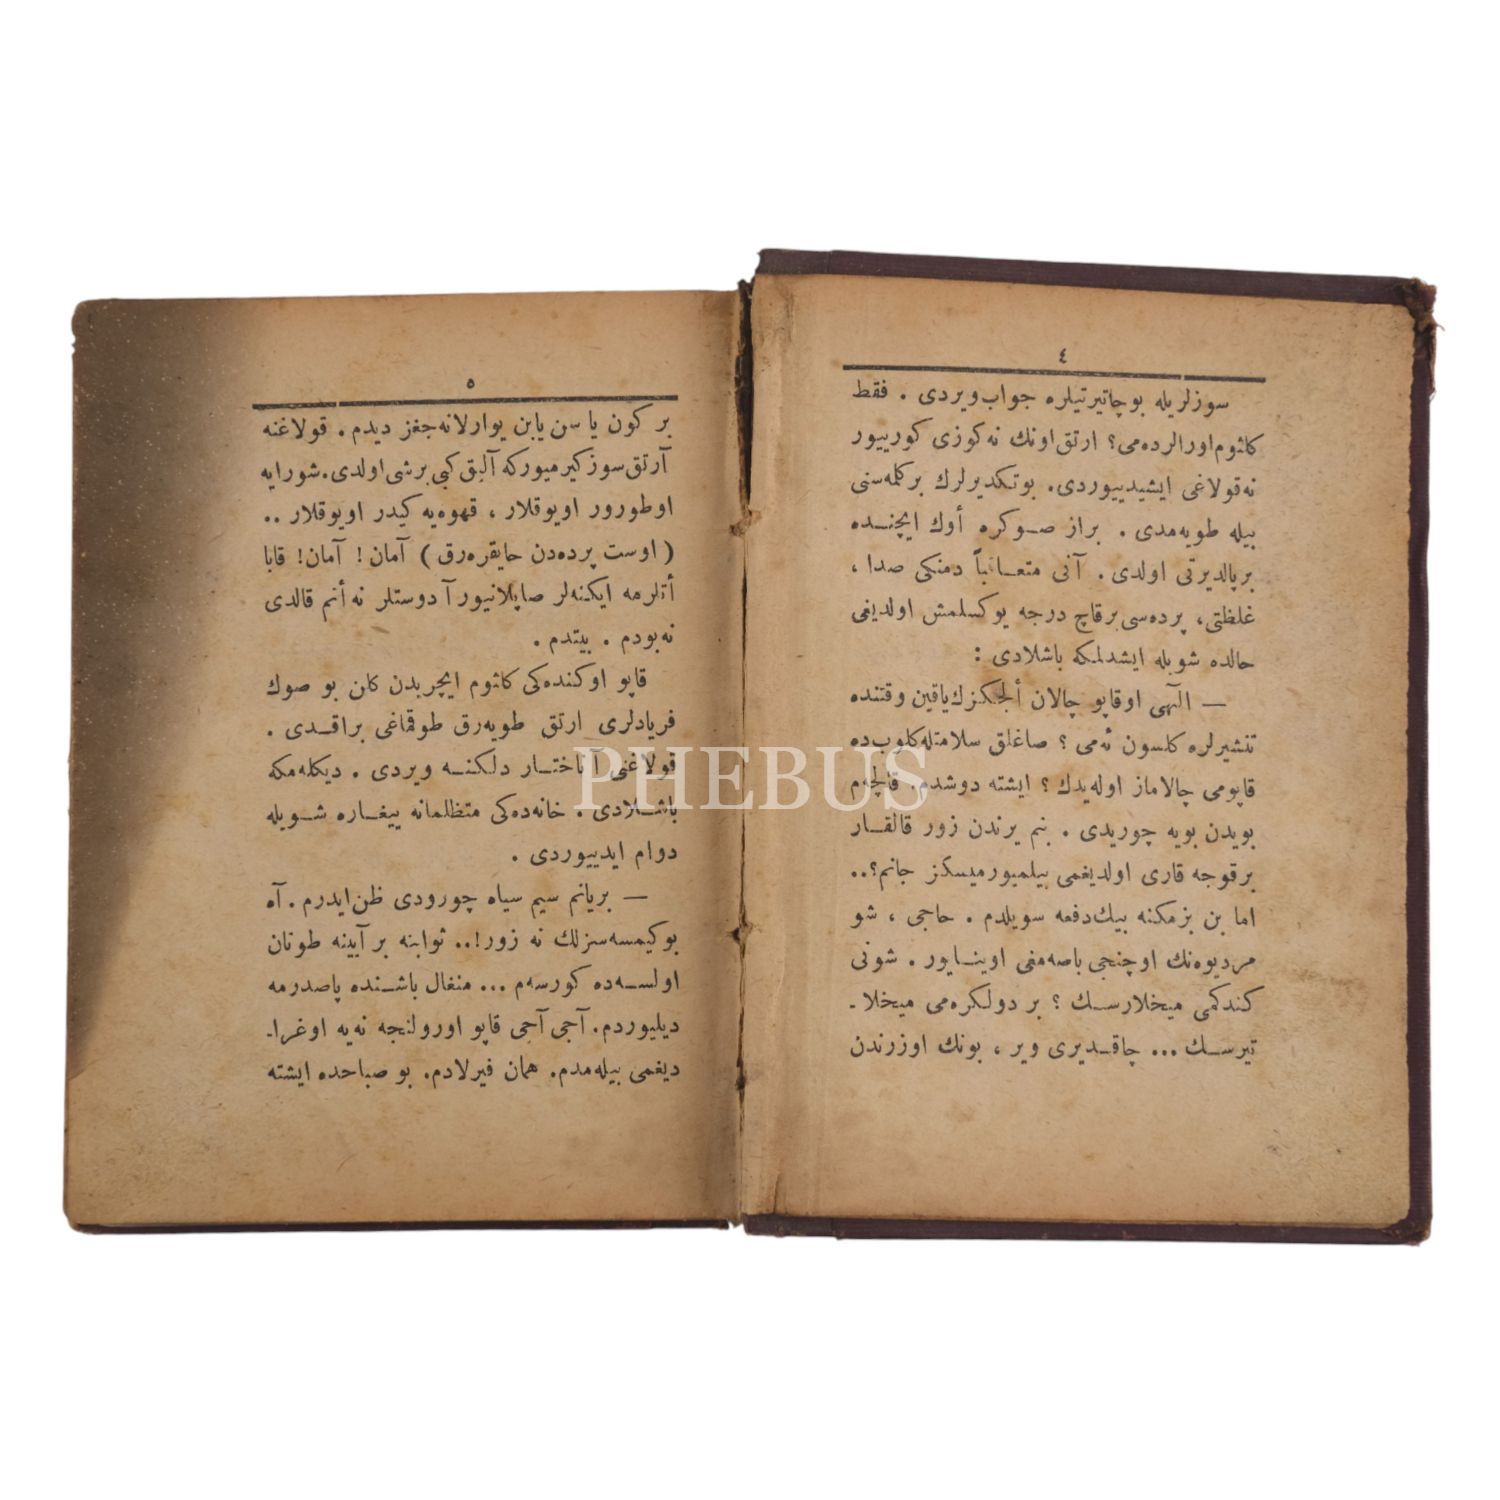 ٤
سوزلریله بو چاتیرتیلره جواب ویردی . فقط
کلثوم اورالرده می؟ ارتق اونك نه کوزی کورییور
نه قولاغی ایشیدییوردی. بو تکدیرلرك بر کلمه سنی
بیله طویه مدی . براز صوکره أوك ایچنده
بر پالدیرتی اولدی . آنی متعاقباً دمنکی صدا ،
غلظتی، پرده سی بر قاچ درجه یوکسلمش اولدیغی
حالده شویله ایشدلمکه باشلادی :
— الٓهی او قاپو چالان ألجکزك یاقین وقتنده
تنشیرلره کلسون ئه می ؟ صاغلق سلامتله کلوب ده
قاپومی چالاماز اوله یدك ؟ ایشته دوشدم. قالچه م
بویدن بویه چوریدی . بنم یرندن زور قالقار
بر قوجه قاری اولدیغمی بیلمیورمیسکز جانم؟..
اما بن بزمکنه بیك دفعه سویلدم . حاجی ، شو
مردیوه نك اوچنجی باصه مغی اوینایور . شونی
کندکمی میخلارسك ؟ بر دولکره می میخلا-
تیرسك ... چاقدیری ویر ، بونك اوزرندن
٥
بر کون یا سن یا بن یوارلانه جغز دیدم. قولاغنه
آرتق سوز کیرمیورکه آلیق کبی بر شی اولدی. شورایه
اوطورور اویوقلار ، قهوه یه کیدر اویوقلار ..
( اوست پرده دن حایقره رق ) آمان ! آمان! قابا
أتلرمه ایکنه لر صاپلانیور آ دوستلر نه أنم قالدی
نه بودم . بیتدم .
قاپو اوکنده کی کلثوم ایچریدن کلن بو صوك
فریادلری ارتق طویه رق طوقماغی براقدی .
قولاغنی آناختار دلکنه ویردی . دیکله مکه
باشلادی . خانه ده کی متظلمانه ییغاره شویله
دوام ایدییوردی .
— بریانم سیم سیاه چورودی ظن ایدرم . آه
بو کیمسه سزلك نه زور!.. ثوابنه بر آیینه طوتان
اولسه ده کورسه م ... منغال باشنده پاصدرمه
دیلیوردم. آجی آجی قاپو اورولنجه نه یه اوغرا-
دیغمی بیله مدم. همان فیرلادم. بو صباحده ایشته
PHEBUS